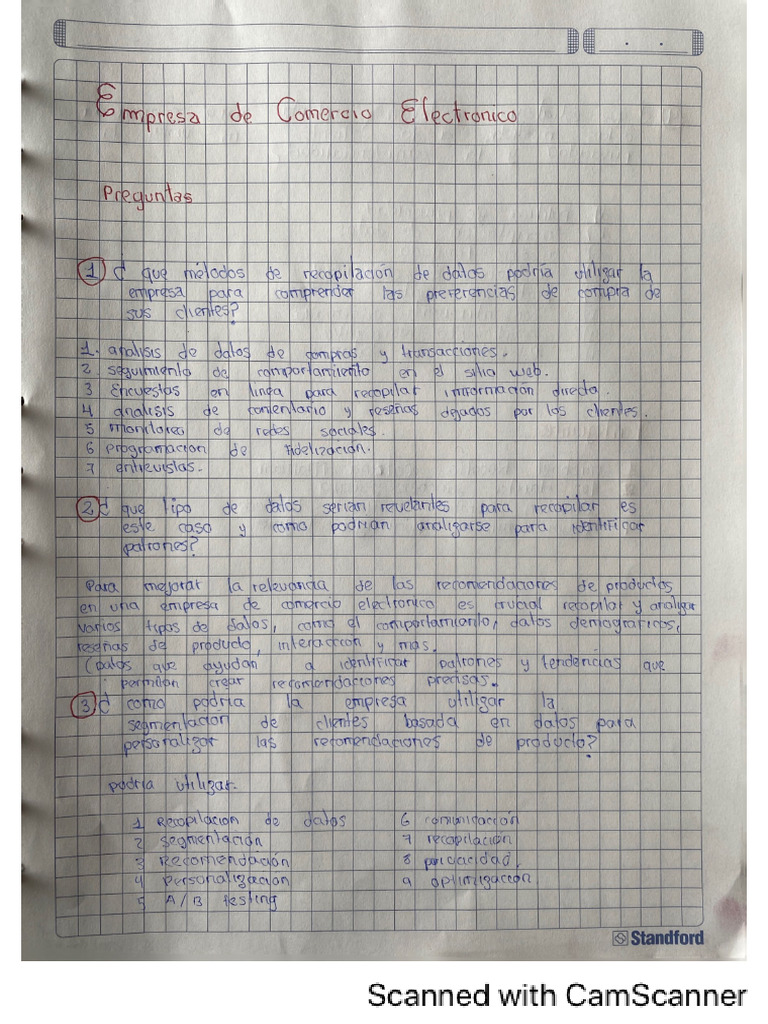 Empresa de Comercio Electronico
Preguntas
1 ¿ que métodos de recopilación de datos podría utilizar la
empresa para comprender las preferencias de compra de
sus clientes?
1. analisis de datos de compras y transacciones.
2 seguimiento de comportamiento en el sitio web.
3 Encuestas en linea para recopilar información directa.
4 analisis de comentario y reseñas dejados por los clientes.
5 monitoreo de redes sociales.
6 programacion de fidelización.
7 entrevistas.
2 ¿ que tipo de datos serian revelantes para recopilar es
este caso y como podrian analizarse para identificar
patrones?
Para mejorar la relevancia de las recomendaciones de productos
en una empresa de comercio electronico es crucial recopilar y analizar
varios tipos de datos, como el comportamiento, datos demograficos,
reseñas de producto, interaccion y mas.
(Datos que ayudan a identificar patrones y tendencias que
permitan crear recomendaciones precisas.
3 ¿ como podria la empresa utilizar la
segmentacion de clientes basada en datos para
personalizar las recomendaciones de producto?
podria utilizar.
1 Recopilacion de datos
2 segmentación
3 Recomendación
4 Personalización
5 A/B testing
6 comunicación
7 recopilación
8 privacidad.
9 optimización
Standford
Scanned with CamScanner